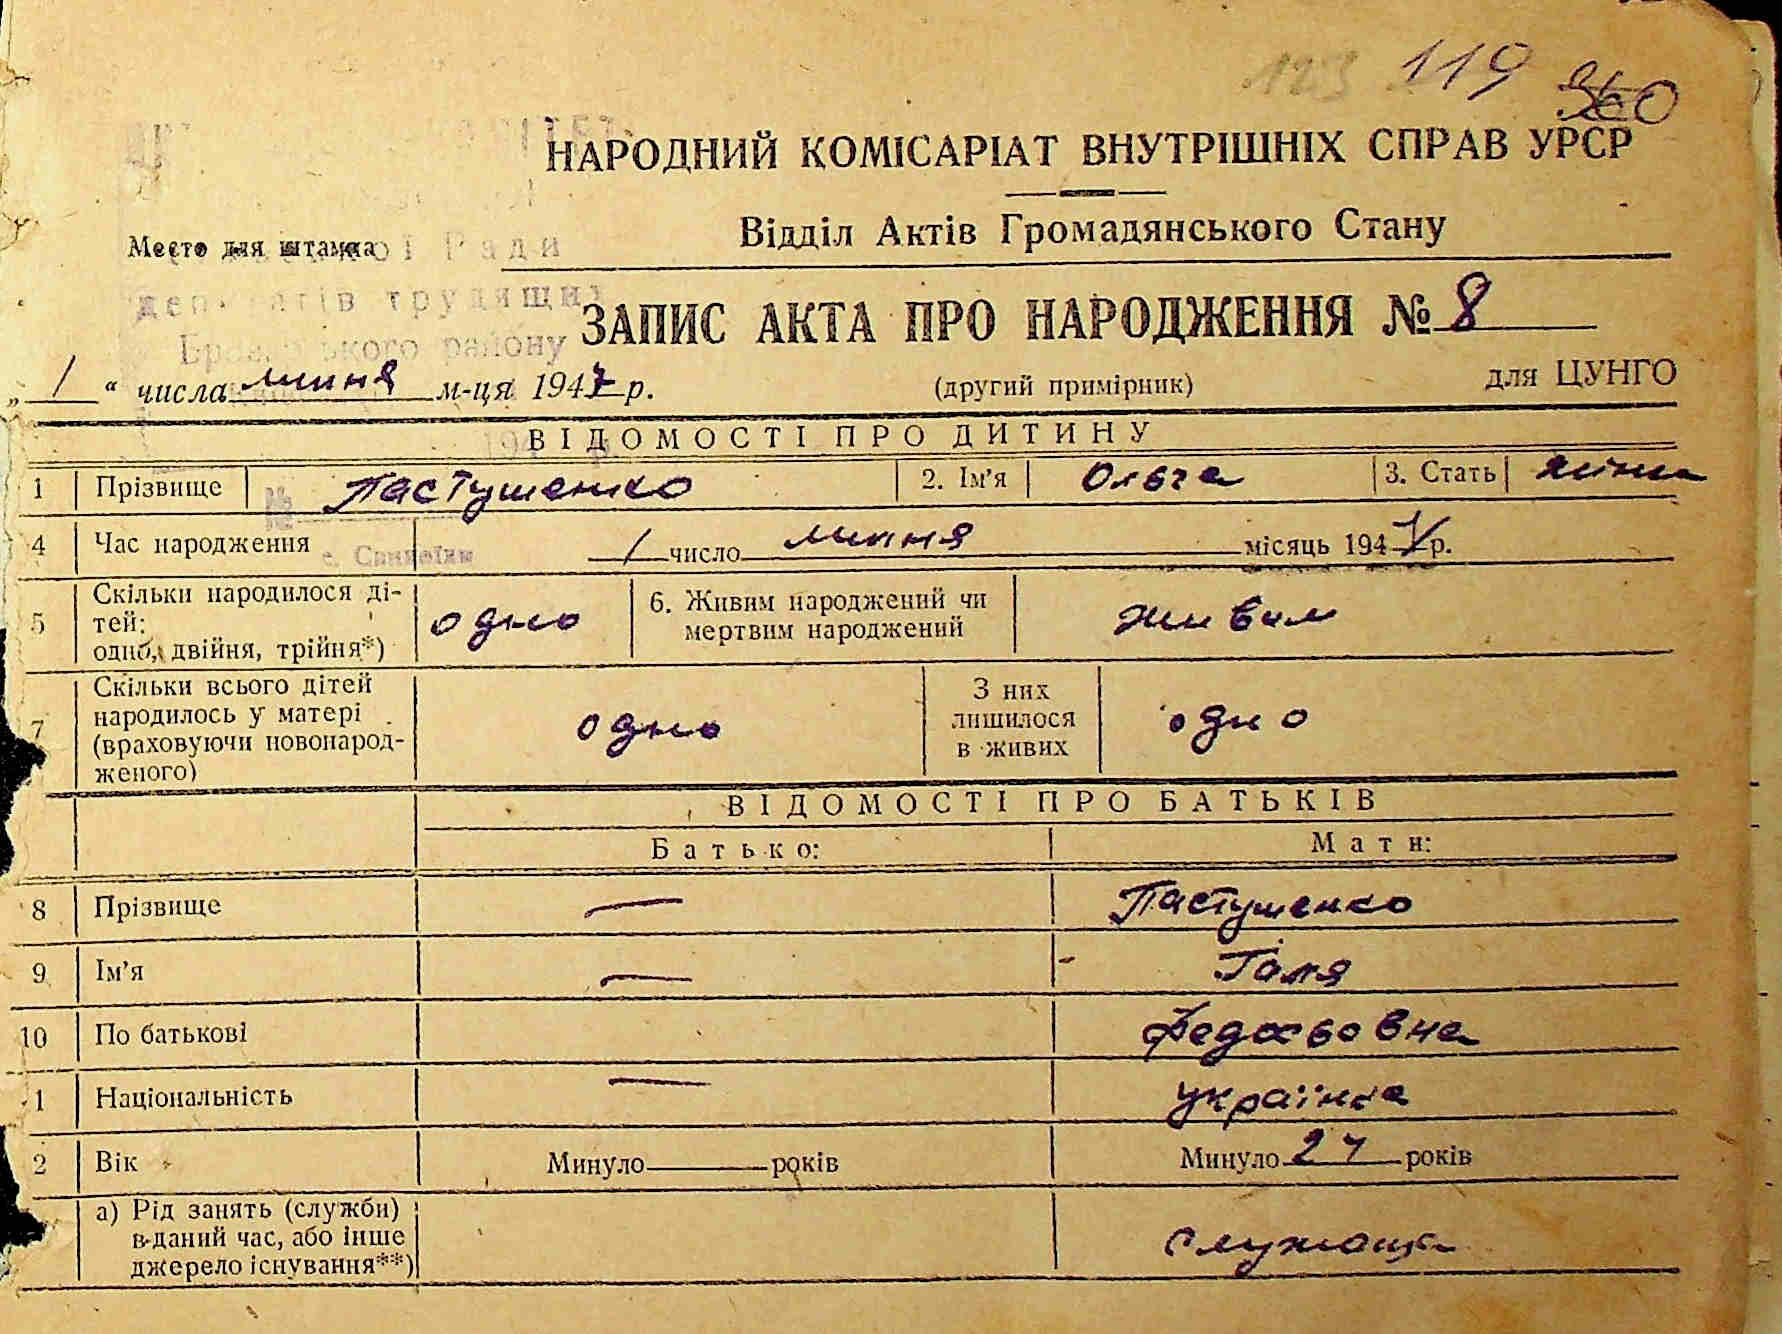 123 119 360
НАРОДНИЙ КОМІСАРІАТ ВНУТРІШНІХ СПРАВ УРСР
Відділ Актів Громадянського Стану
Место для штампа
ої Ради
депутатів трудящих
району
ЗАПИС АКТА ПРО НАРОДЖЕННЯ № 8
„ 1 “ числа липня м-ця 1947 р. (другий примірник) для ЦУНГО
ВІДОМОСТІ ПРО ДИТИНУ
1 Прізвище Пастушенко 2. Ім’я Ольга 3. Стать жіноч
4 Час народження 1 число липня місяць 1947 р.
5 Скільки народилося ді-
тей:
одно, двійня, трійня*) одно 6. Живим народжений чи
мертвим народжений живим
7 Скільки всього дітей
народилось у матері
(враховуючи новонарод-
женого) одно З них
лишилося
в живих одно
ВІДОМОСТІ ПРО БАТЬКІВ
Батько: Мати:
8 Прізвище — Пастушенко
9 Ім’я — Галя
10 По батькові Федоровна
1 Національність — українка
2 Вік Минуло ___ років Минуло 24 років
а) Рід занять (служби)
в даний час, або інше
джерело існування**) служаща